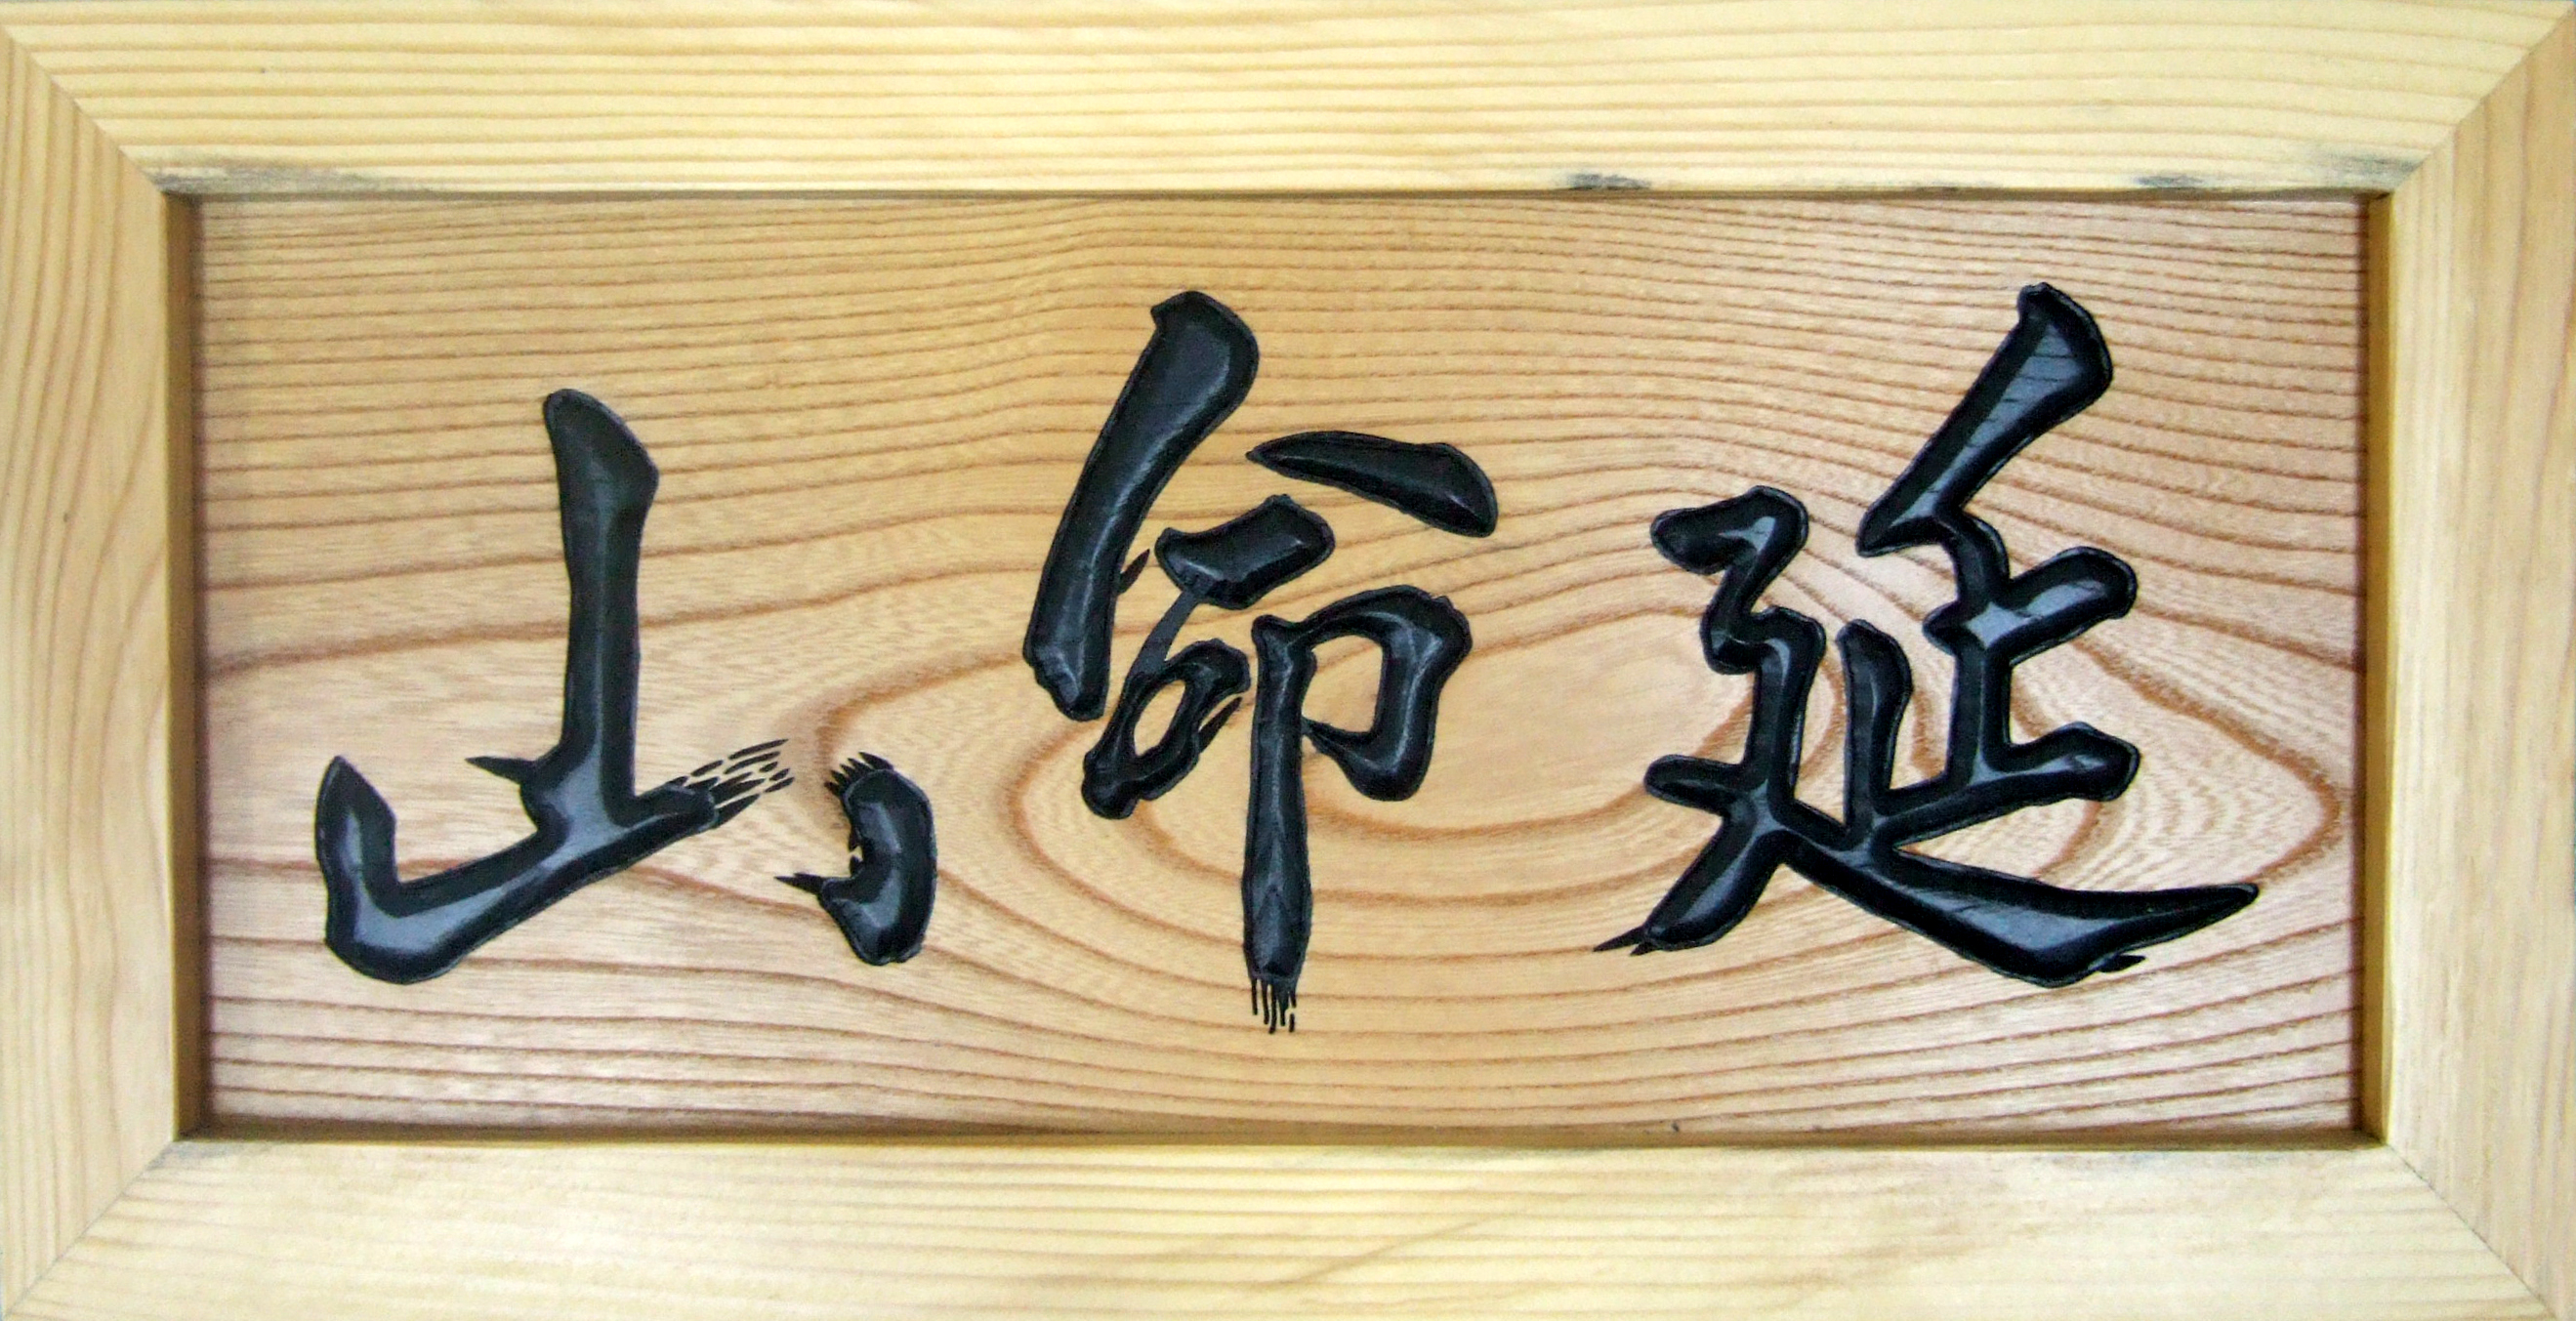 延命山